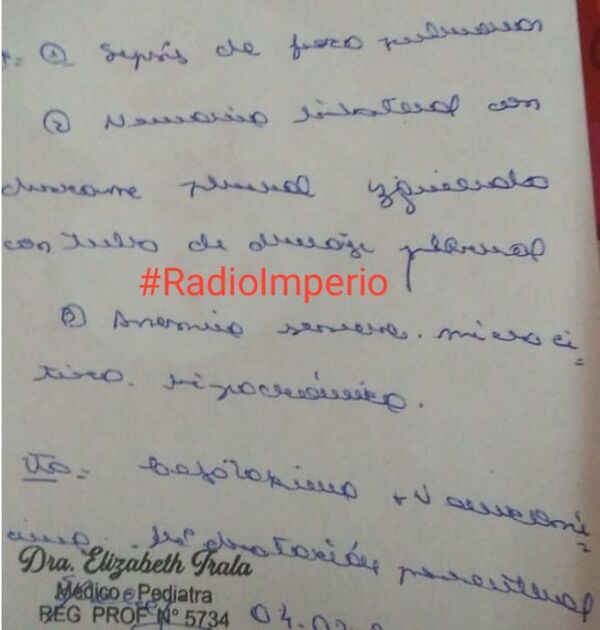 ① Sepsis de foco pulmonar
② Neumonia bilateral con
derrame pleural izquierdo
con tubo de drenaje pleural
#RadioImperio
③ Anemia severa. microci=
tica. hipocrómica.
Tto= Cefotaxima + Vancomi=
cina. Hidratación parenteral
Dra. Elizabeth Trala
Médico Pediatra
REG PROF Nº 5734 04.02.